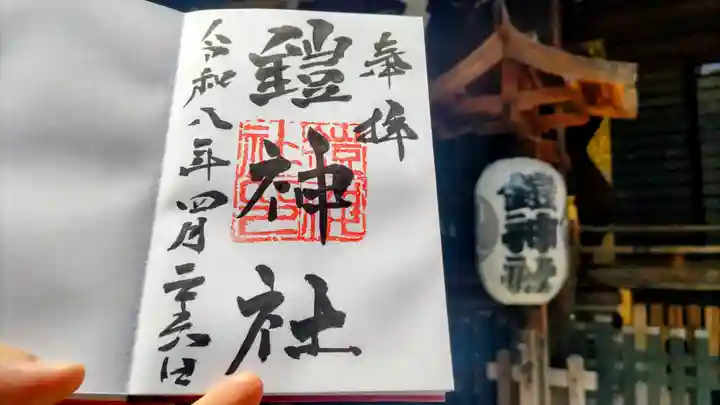 奉拝
鎧神社
鎧神社印
令和八年四月二十六日
鎧神社